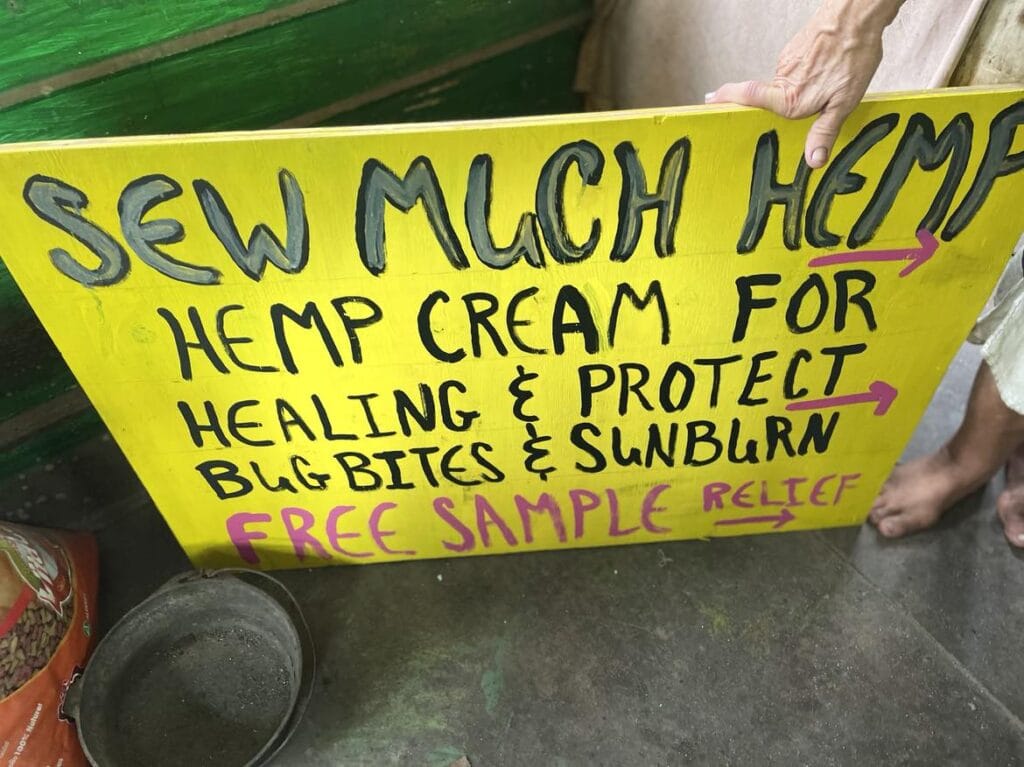 SEW MUCH HEMP
HEMP CREAM FOR
HEALING & PROTECT
BUG BITES & SUNBURN
FREE SAMPLE RELIEF
100% Natural